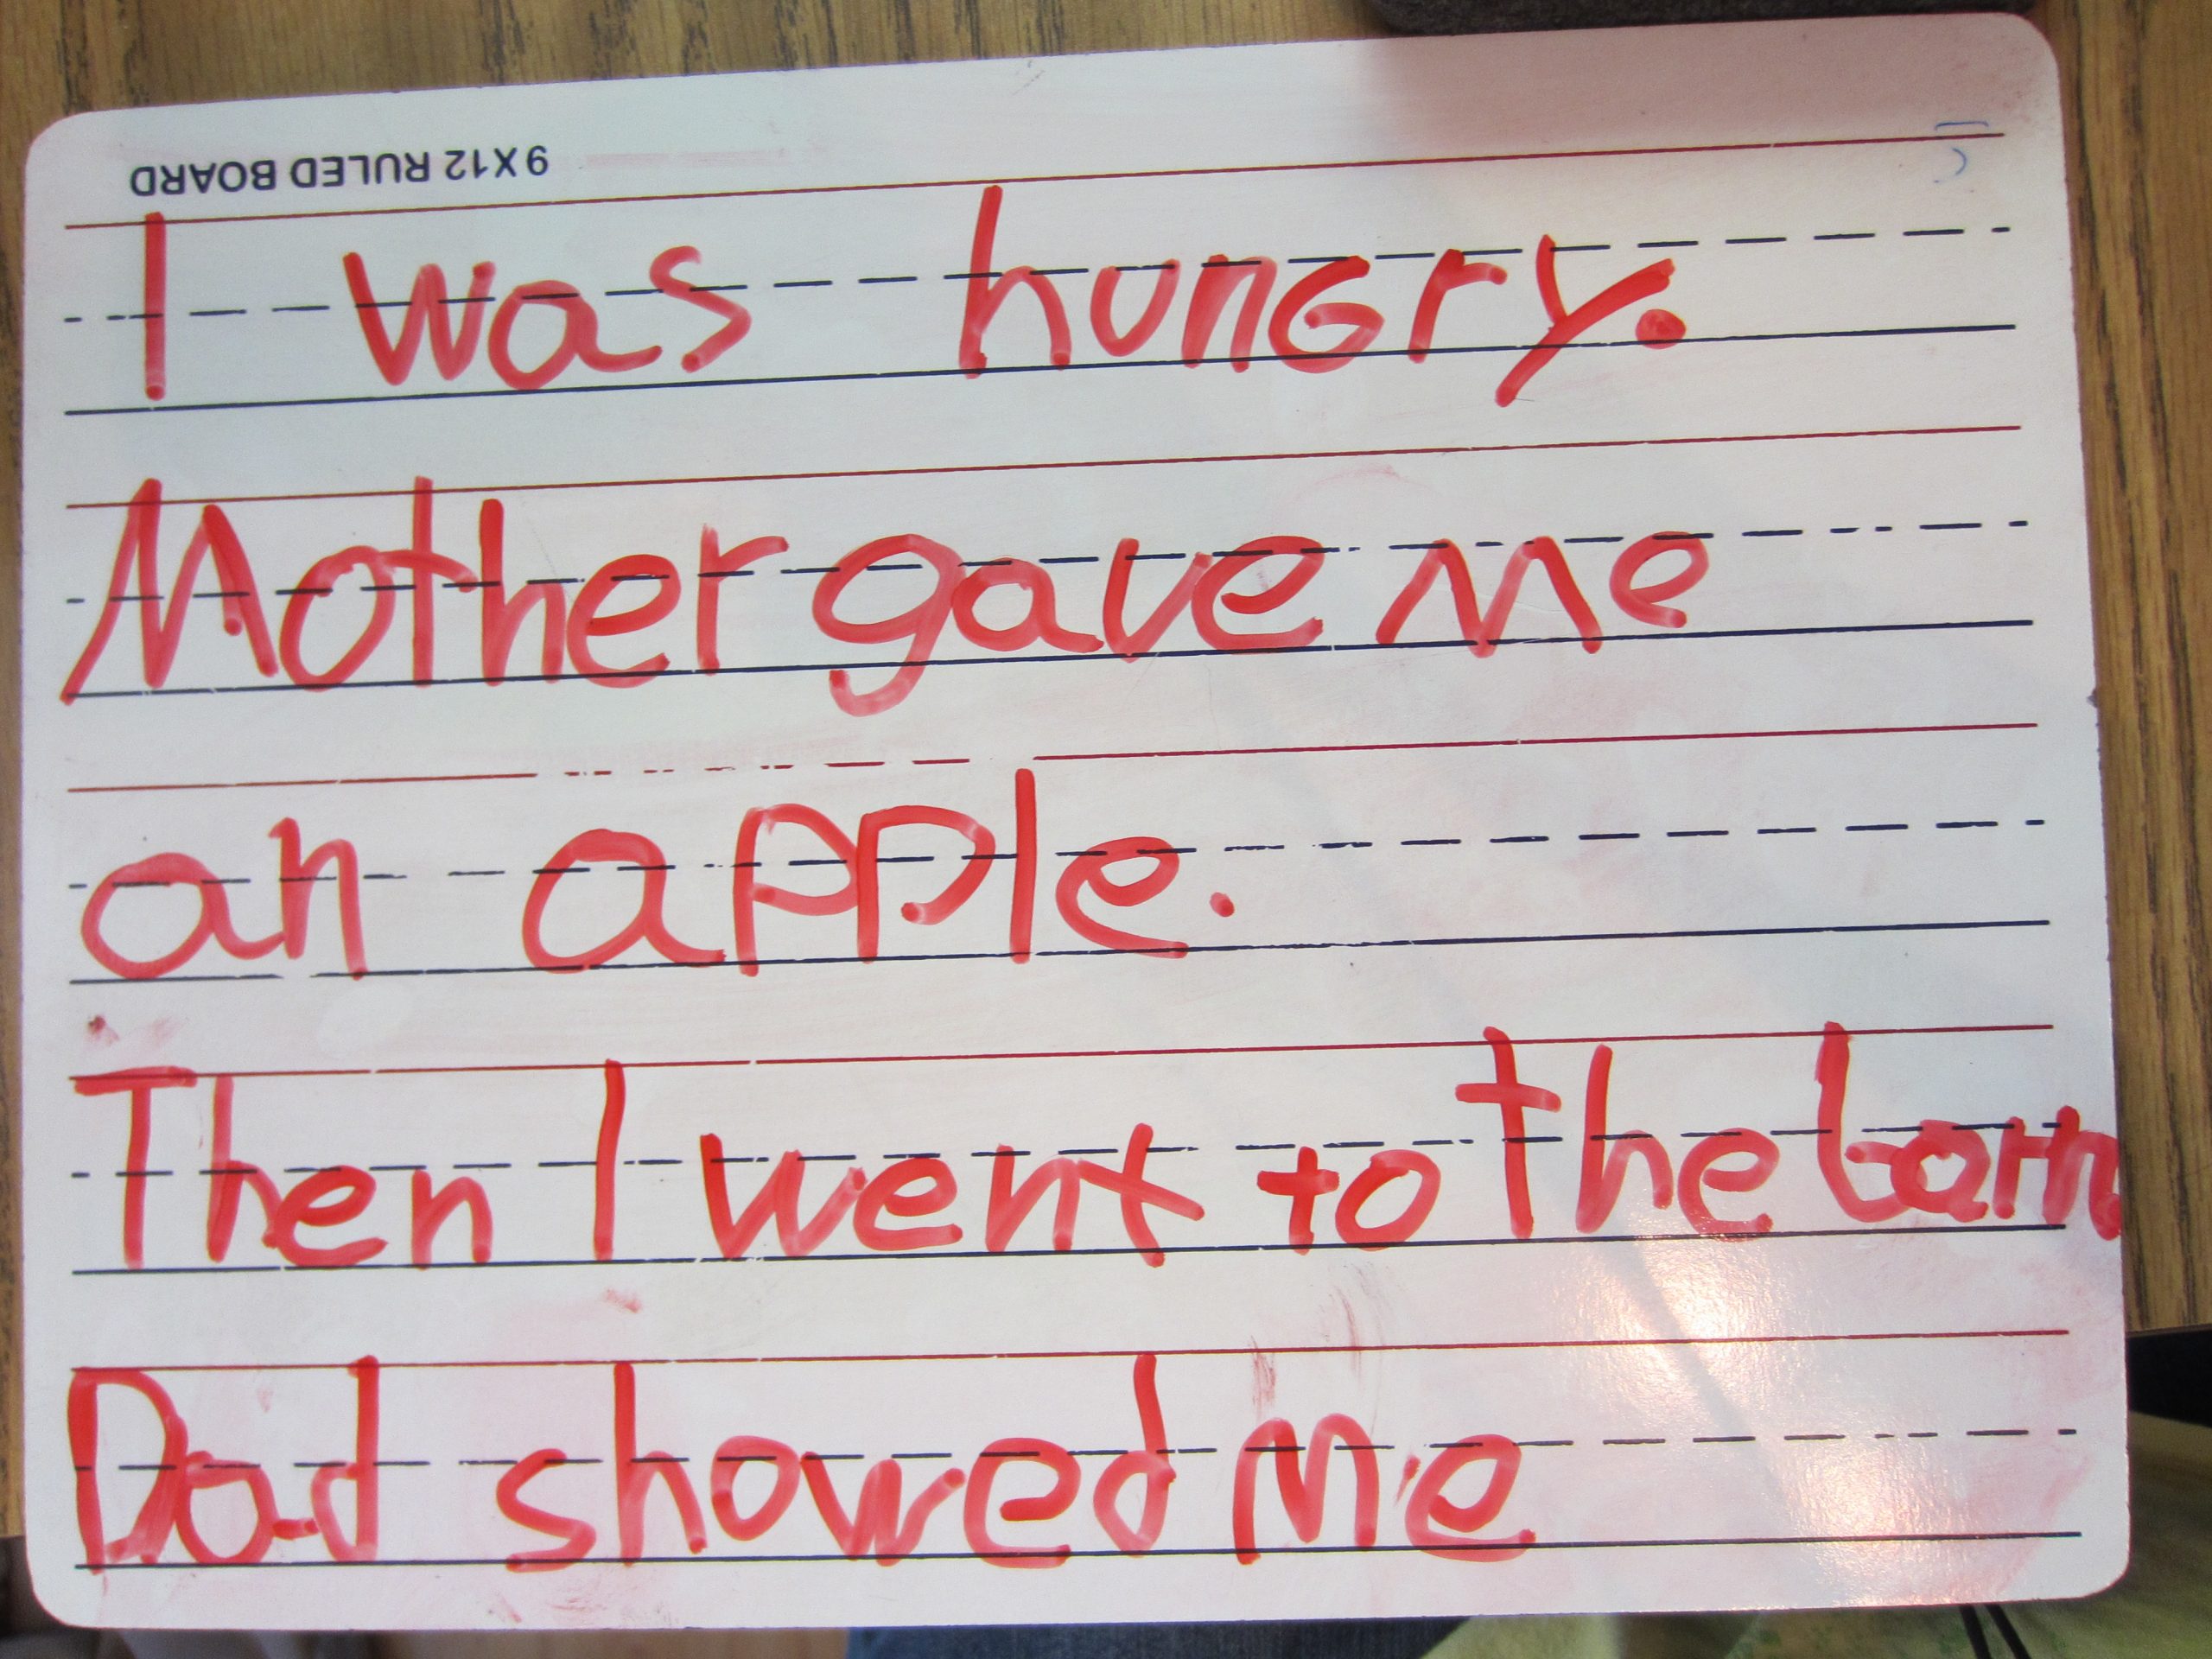 9X12 RULED BOARD
I was hungry.
Mother gave me
an apple.
Then I went to the barn.
Dad showed me